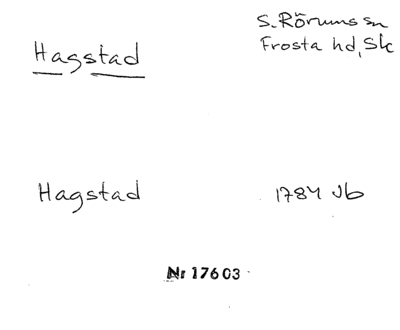 Hagstad
S. Rörums sn
Frosta hd, Sk
Hagstad
1784 Jb
Nr 17603